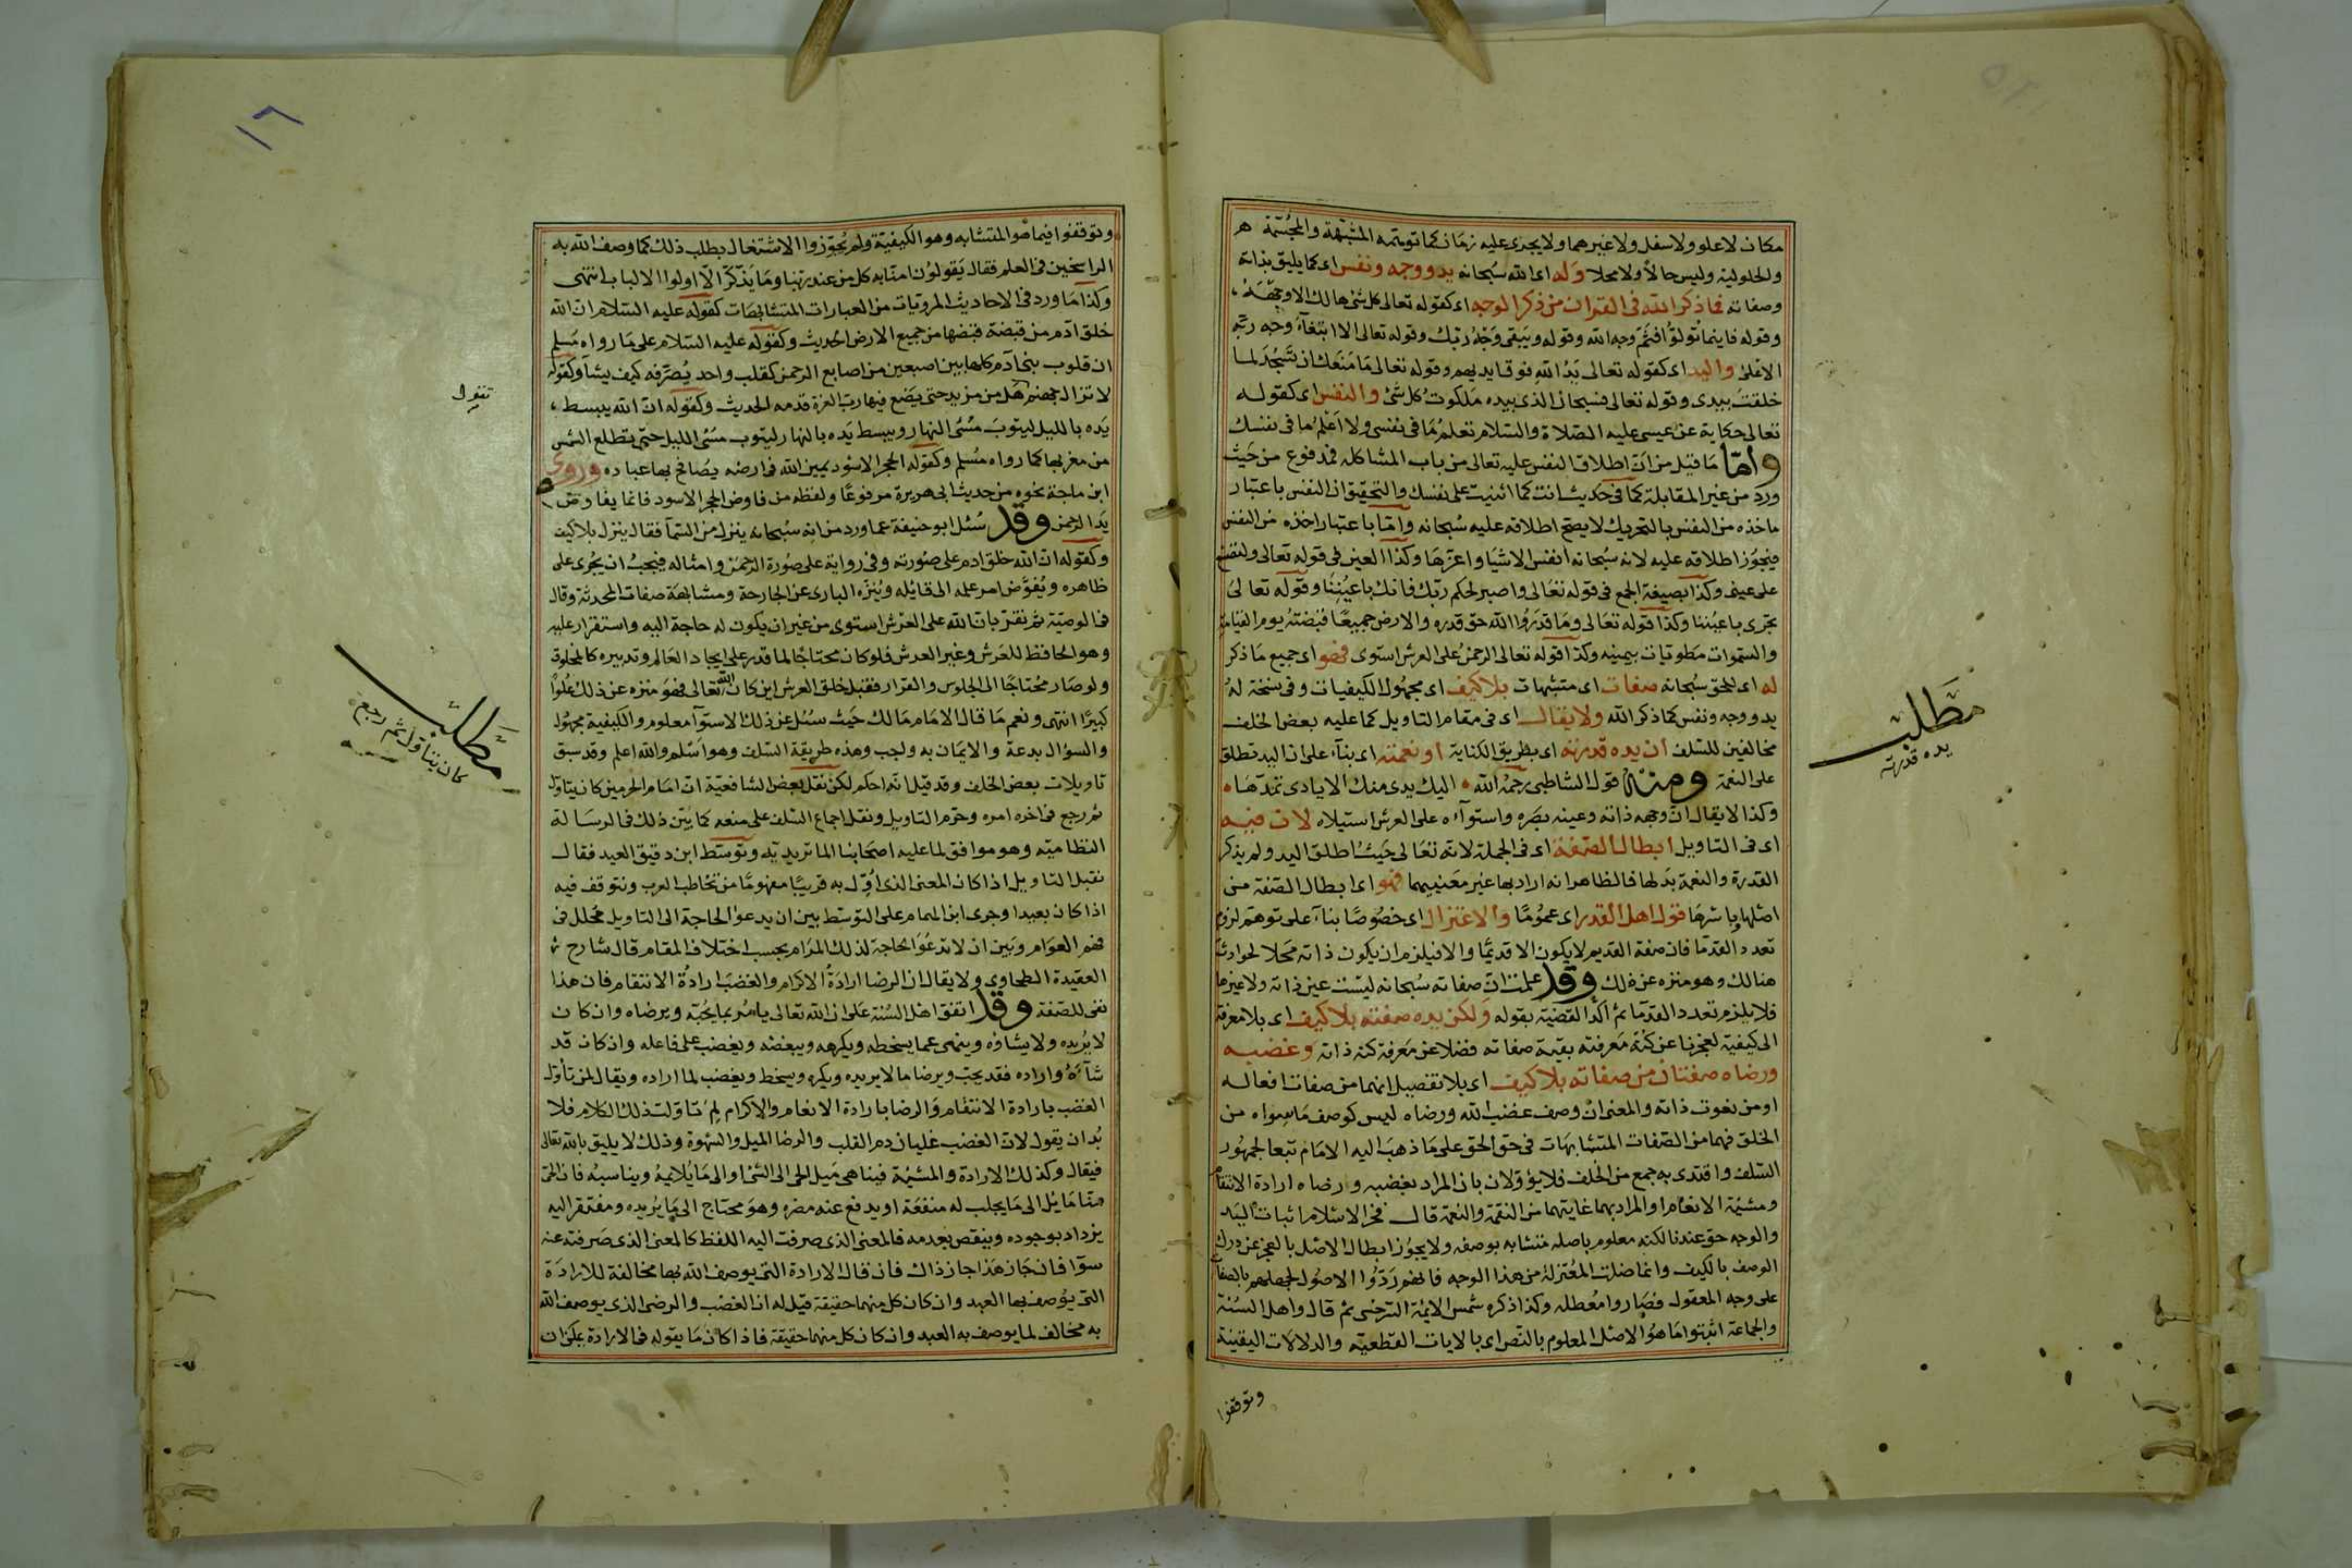 مكان لا علو ولا سفل ولا غيرهما ولا يجرى عليه زمان كما توهمه المشبهة والمجسمة
والحلولية وليس حالا ولا محلا وله اى الله سبحانه يد ووجه ونفس اى كما يليق بذاته
وصفاته فما ذكر الله فى القران من ذكر الوجه اى كقوله تعالى كل شئ هالك الا وجهه
وقوله فاينما تولوا فثم وجه الله وقوله ويبقى وجه ربك وقوله تعالى الا ابتغآء وجه ربه
الاعلى واليد اى كقوله تعالى يد الله فوق ايديهم وقوله تعالى ما منعك ان تسجد لما
خلقت بيدى وقوله تعالى فسبحان الذى بيده ملكوت كل شئ والنفس اى كقوله
تعالى حكاية عن عيسى عليه الصلاة والسلام تعلم ما فى نفسى ولا اعلم ما فى نفسك
واما ما قيل من ان اطلاق النفس عليه تعالى من باب المشاكله فمدفوع من حيث
ورد من غير المقابلة كما فى حديث انت كما اثنيت على نفسك والتحقيق ان النفس باعتبار
ماخذه من النفس بالتحريك لا يصح اطلاقه عليه سبحانه واما باعتبار اخذه من النفس
فيجوز اطلاقه عليه لانه سبحانه انفس الاشيا واعزها وكذا العين فى قوله تعالى ولتصنع
على عينى وكذا بصيغة الجمع فى قوله تعالى واصبر لحكم ربك فانك باعيننا وقوله تعالى
تجرى باعيننا وكذا قوله تعالى وما قدروا الله حق قدره والارض جميعا قبضته يوم القيامة
والسموات مطويات بيمينه وكذا قوله تعالى الرحمن على العرش استوى فهو اى جميع ما ذكر
له اى للحق سبحانه صفات اى متشبهات بلا كيف اى مجهول الكيفيات وفى نسخة له
يد ووجه ونفس كما ذكر الله ولا يقال اى فى مقام التاويل كما عليه بعض الخلف
مخالفين للسلف ان يده قدرته اى بطريق الكناية او نعمته اى بنآء على ان اليد تطلق
على النعمة ومنه قول الشاطبى رحمه الله • اليك يدى منك الايادى تمدها •
وكذا لا يقال ان وجهه ذاته وعينه بصره واستوآءه على العرش استيلاه لان فيه
اى فى التاويل ابطال الصفة اى فى الجملة لانه تعالى حيث اطلق اليد ولم يذكر
القدرة والنعمة بدلها فالظاهر انه اراد بها غير معنييهما فهو اى ابطال الصفة من
اصلها باسرها قول اهل القدر اى عموما والاعتزال اى خصوصا بنآء على توهم لزوم
تعدد القدما فان صفة القديم لا يكون الا قديما والا فيلزم ان يكون ذاته محلا لحوادث
هنالك وهو منزه عن ذلك وقد علمت ان صفاته سبحانه ليست عين ذاته ولا غيرها
فلا يلزم تعدد القدما ثم اكد القضية بقوله ولكن يده صفته بلا كيف اى بلا معرفة
الى كيفية لعجزنا عن كنه معرفته بقية صفاته فضلا عن معرفة كنه ذاته وغضبه
ورضاه صفتان من صفاته بلا كيف اى بلا تفصيل انهما من صفات افعاله
او من نعوت ذاته والمعنى ان وصف غضب الله ورضاه ليس كوصف ما سواه من
الخلق فهما من الصفات المتشابهات فى حق الحق على ما ذهب اليه الامام تبعا لجمهور
السلف واقتدى به جمع من الخلف فلا يؤولان بان المراد بغضبه ورضاه ارادة الانتقام
ومشيئة الانعام او المراد بهما غايتهما من النقمة والنعمة قال فخر الاسلام اثبات اليد
والوجه حق عندنا لكنه معلوم باصله متشابه بوصفه ولا يجوز ابطال الاصل بالعجز عن درك
الوصف بالكيف وانما ضلت المعتزلة من هذا الوجه فانهم ردوا الاصول لجهلهم بالصفات
على وجه المعقول فصاروا معطله وكذا ذكره شمس الايمة السرخسى ثم قال واهل السنة
والجماعة اثبتوا ما هو الاصل المعلوم بالنص اى بالايات القطعية والدلالات اليقينة
وتوقفوا
مطلب
يده قدرته
١٦
وتوقفوا فيما هو المتشابه وهو الكيفية ولم يجوزوا الاشتغال بطلب ذلك كما وصف الله به
الراسخين فى العلم فقال يقولون امنا به كل من عند ربنا وما يذكر الا اولوا الالباب انتهى
وكذا ما ورد فى الاحاديث المرويات من العبارات المتشابهات كقوله عليه السلام ان الله
خلق ادم من قبضة قبضها من جميع الارض الحديث وكقوله عليه السلام على ما رواه مسلم
ان قلوب بنى آدم كلها بين اصبعين من اصابع الرحمن كقلب واحد يصرفه كيف يشآ وكقوله
لا تزال جهنم هل من مزيد حتى يضع فيها رب العزة قدمه الحديث وكقوله ان الله يبسط
يده بالليل ليتوب مسئ النهار ويبسط يده بالنهار ليتوب مسئ الليل حتى تطلع الشمس
من مغربها كما رواه مسلم وكقوله الحجر الاسود يمين الله فى ارضه يصافح بها عباده وروى
ابن ماجة نحوه من حديث ابى هريرة مرفوعا ولفظه من فاوض الحجر الاسود فانما يفاوض
يد الرحمن وقد سئل ابو حنيفة عما ورد من انه سبحانه ينزل من السمآ فقال ينزل بلا كيف
وكقوله ان الله خلق ادم على صورته وفى رواية على صورة الرحمن وامثاله فيجب ان يجرى على
ظاهره ويفوض امر علمه الى قائله وينزه البارى عن الجارحة ومشابهة صفات المحدثة وقال
فى الوصية ثم نقر بان الله على العرش استوى من غير ان يكون له حاجة اليه واستقرار عليه
وهو الحافظ للعرش وغير العرش فلو كان محتاجا لما قدر على ايجاد العالم وتدبيره كالمخلوق
ولو صار محتاجا الى الجلوس والقرار فقبل خلق العرش اين كان الله تعالى فهو منزه عن ذلك علوا
كبيرا انتهى ونعم ما قال الامام مالك حيث سئل عن ذلك الاستوآ معلوم والكيفية مجهولة
والسؤال بدعة والايمان به واجب وهذه طريقة السلف وهو اسلم والله اعلم وقد سبق
تاويلات بعض الخلف وقد قيل انه احكم لكن نقل بعض الشافعية ان امام الحرمين كان يتاول
ثم رجع فى اخره امره وحرم التاويل ونقل اجماع السلف على منعه كما بين ذلك فى الرسالة
النظامية وهو موافق لما عليه اصحابنا الماتريديه وتوسط ابن دقيق العيد فقال
نقبل التاويل اذا كان المعنى الذى اول به قريبا مفهوما من تخاطب العرب ونتوقف فيه
اذا كان بعيدا وجرى ابن الهمام على التوسط بين ان يدعو الحاجة الى التاويل لخلل فى
فهم العوام وبين ان لا تدعو الحاجة لذلك المرام بحسب اختلاف المقام قال شارح
العقيدة الطحاوى ولا يقال ان الرضا ارادة الاكرام والغضب ارادة الانتقام فان هذا
نفى للصفة وقد اتفق اهل السنة على ان الله تعالى يامر بما يحبه ويرضاه وان كان
لا يريده ولا يشاؤه وينهى عما يسخطه ويكرهه ويبغضه ويغضب على فاعله واذ كان قد
شآءه واراده فقد يحب ويرضا ما لا يريده ويكره ويسخط ويغضب لما اراده ويقال لمن تأول
الغضب بارادة الانتقام والرضا بارادة الانعام والاكرام لم تاولت ذلك الكلام فلا
بد ان يقول لان الغضب غليان دم القلب والرضا الميل والشهوة وذلك لا يليق بالله تعالى
فيقال وكذلك الارادة والمشيئة فينا هى ميل الحى الى الشئ او الى ما يلايمه ويناسبه فان الحى
منا مايل الى ما يجلب له منفعة او يدفع عنه مضره وهو محتاج الى ما يريده ومفتقر اليه
يزداد بوجوده وينقص بعدمه فالمعنى الذى صرفت اليه اللفظ كالمعنى الذى صرفته عنه
سوآ فان جاز هذا جاز ذاك فان قال الارادة التى يوصف الله بها مخالفة للارادة
التى يوصف بها العبد وان كان كل منهما حقيقة قيل له ان الغضب والرضى الذى يوصف الله
به مخالف لما يوصف به العبد وان كان كل منهما حقيقة فاذا كان ما يقوله فى الارادة يمكن ان
مطلب
كان يتاول ثم رجع